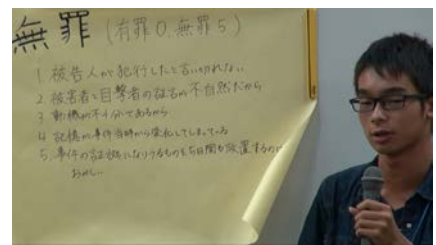 無罪 (有罪0、無罪5)
1 被告人が犯行したと言い切れない
2 被害者と目撃者の証言が不自然だから
3 動機が不十分であるから
4 記憶が事件当時から変化してしまっている
5. 事件の証拠になりうるものを5日間も放置するのが
おかしい